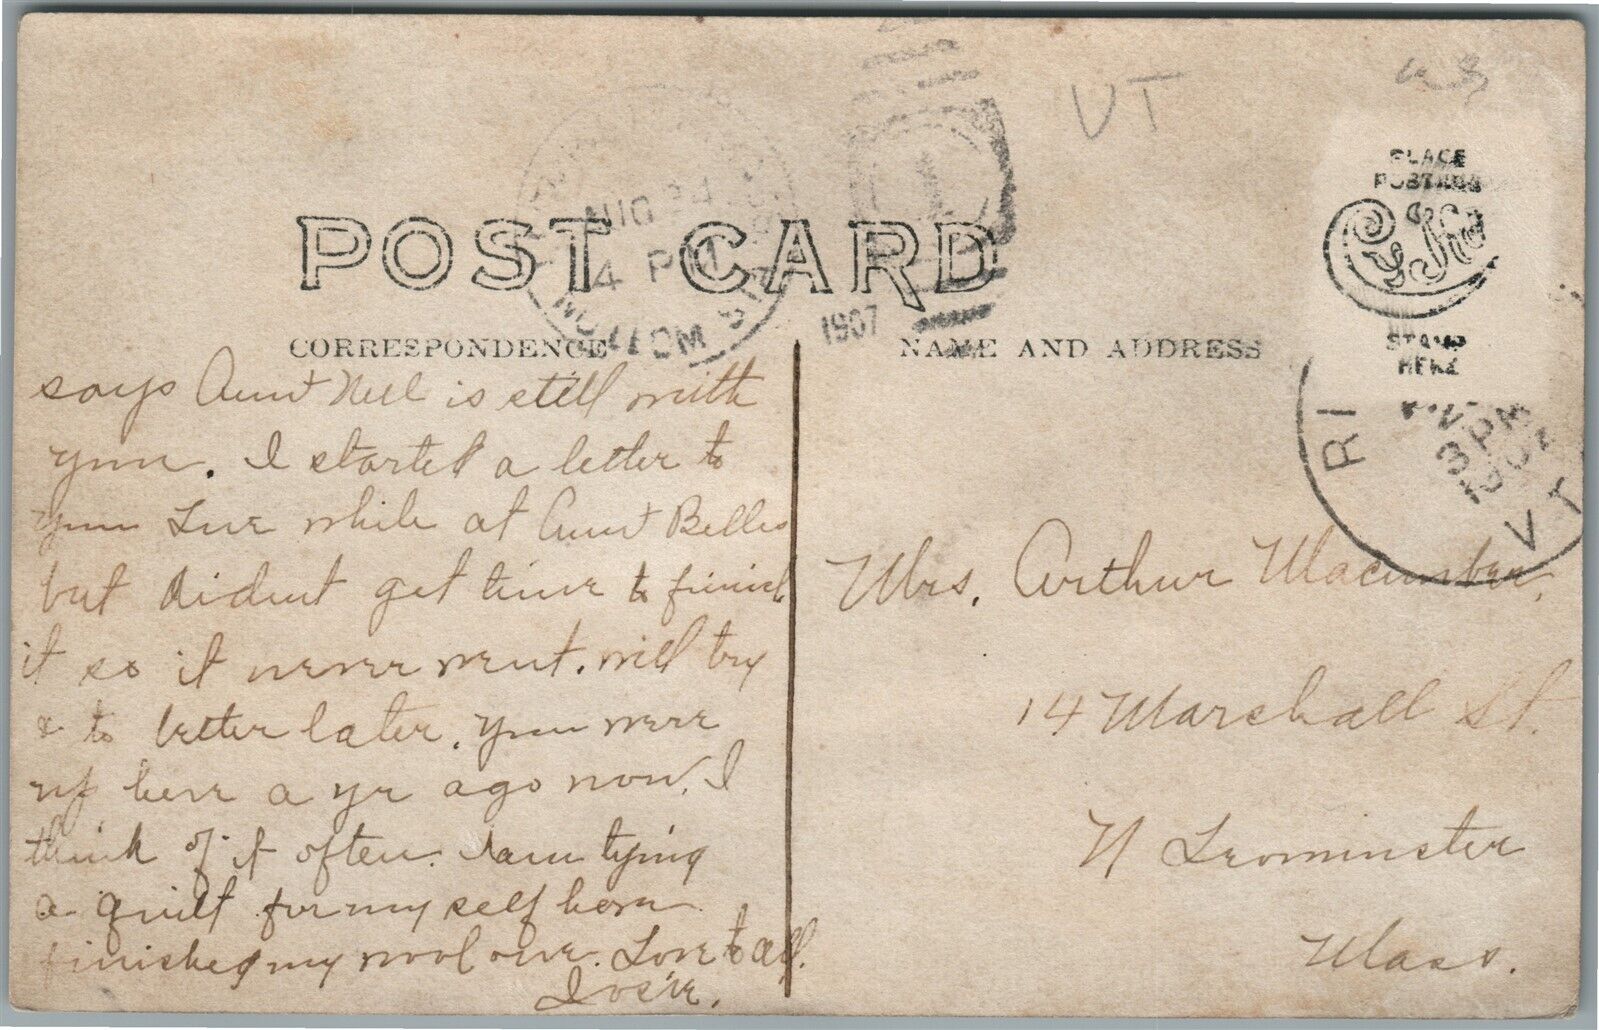 VT
PLACE
POSTAGE
STAMP
HERE
AUG 24
4 PM
1907
1
POST CARD
CORRESPONDENCE
NAME AND ADDRESS
RI
3 PM
1907
VT
says Aunt Nell is still with
you. I started a letter to
you Sue while at Aunt Belles
but dident get time to finish
it so it never went. will try
& to better later. you were
up here a yr ago now. I
think of it often. I am tying
a quilt for my self have
finished my wool one. Love to all.
Josie.
Mrs. Arthur Macumber,
14 Marshall St.
N Leominster
Mass.